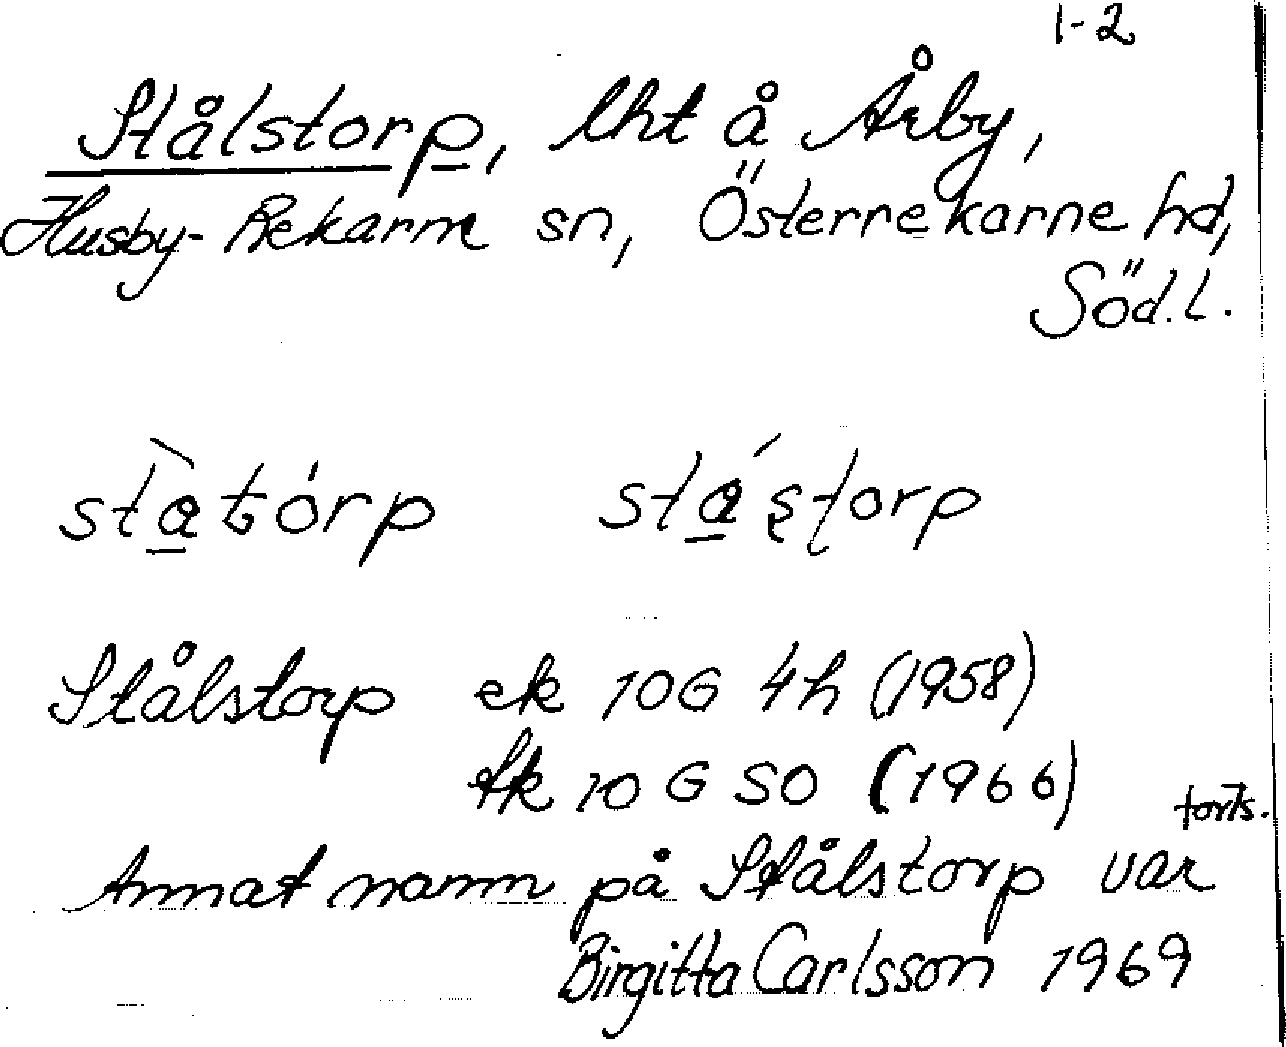 1-2
Stålstorp, lht å Årby,
Husby-Rekarne sn, Österrekarne hd,
Söd.l.
statorp stastorp
Stålstorp ek 10G 4h (1958)
tk 10 G SO (1966)
forts.
Annat namn på Stålstorp var
Birgitta Carlsson 1969